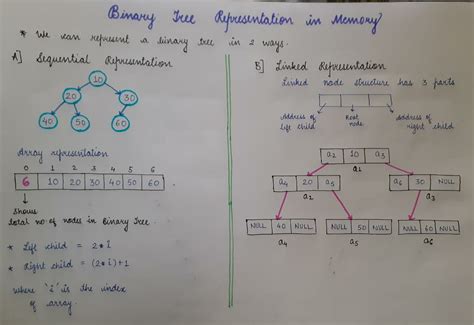 Binary Tree Representation in Memory
* We can represent a binary tree in 2 ways.
A] Sequential Representation
10
20 30
40 50 60
Array representation
0 1 2 3 4 5 6
6 10 20 30 40 50 60
Shows
total no. of nodes in Binary Tree.
* Left child = 2*i
* Right child = (2*i)+1
where 'i' is the index
of array.
B] Linked Representation
Linked node structure has 3 parts
Address of left child
Root node.
Address of right child
a2 10 a3
a1
a4 20 a5
a2
a6 30 NULL
a3
NULL 40 NULL
a4
NULL 50 NULL
a5
NULL 60 NULL
a6